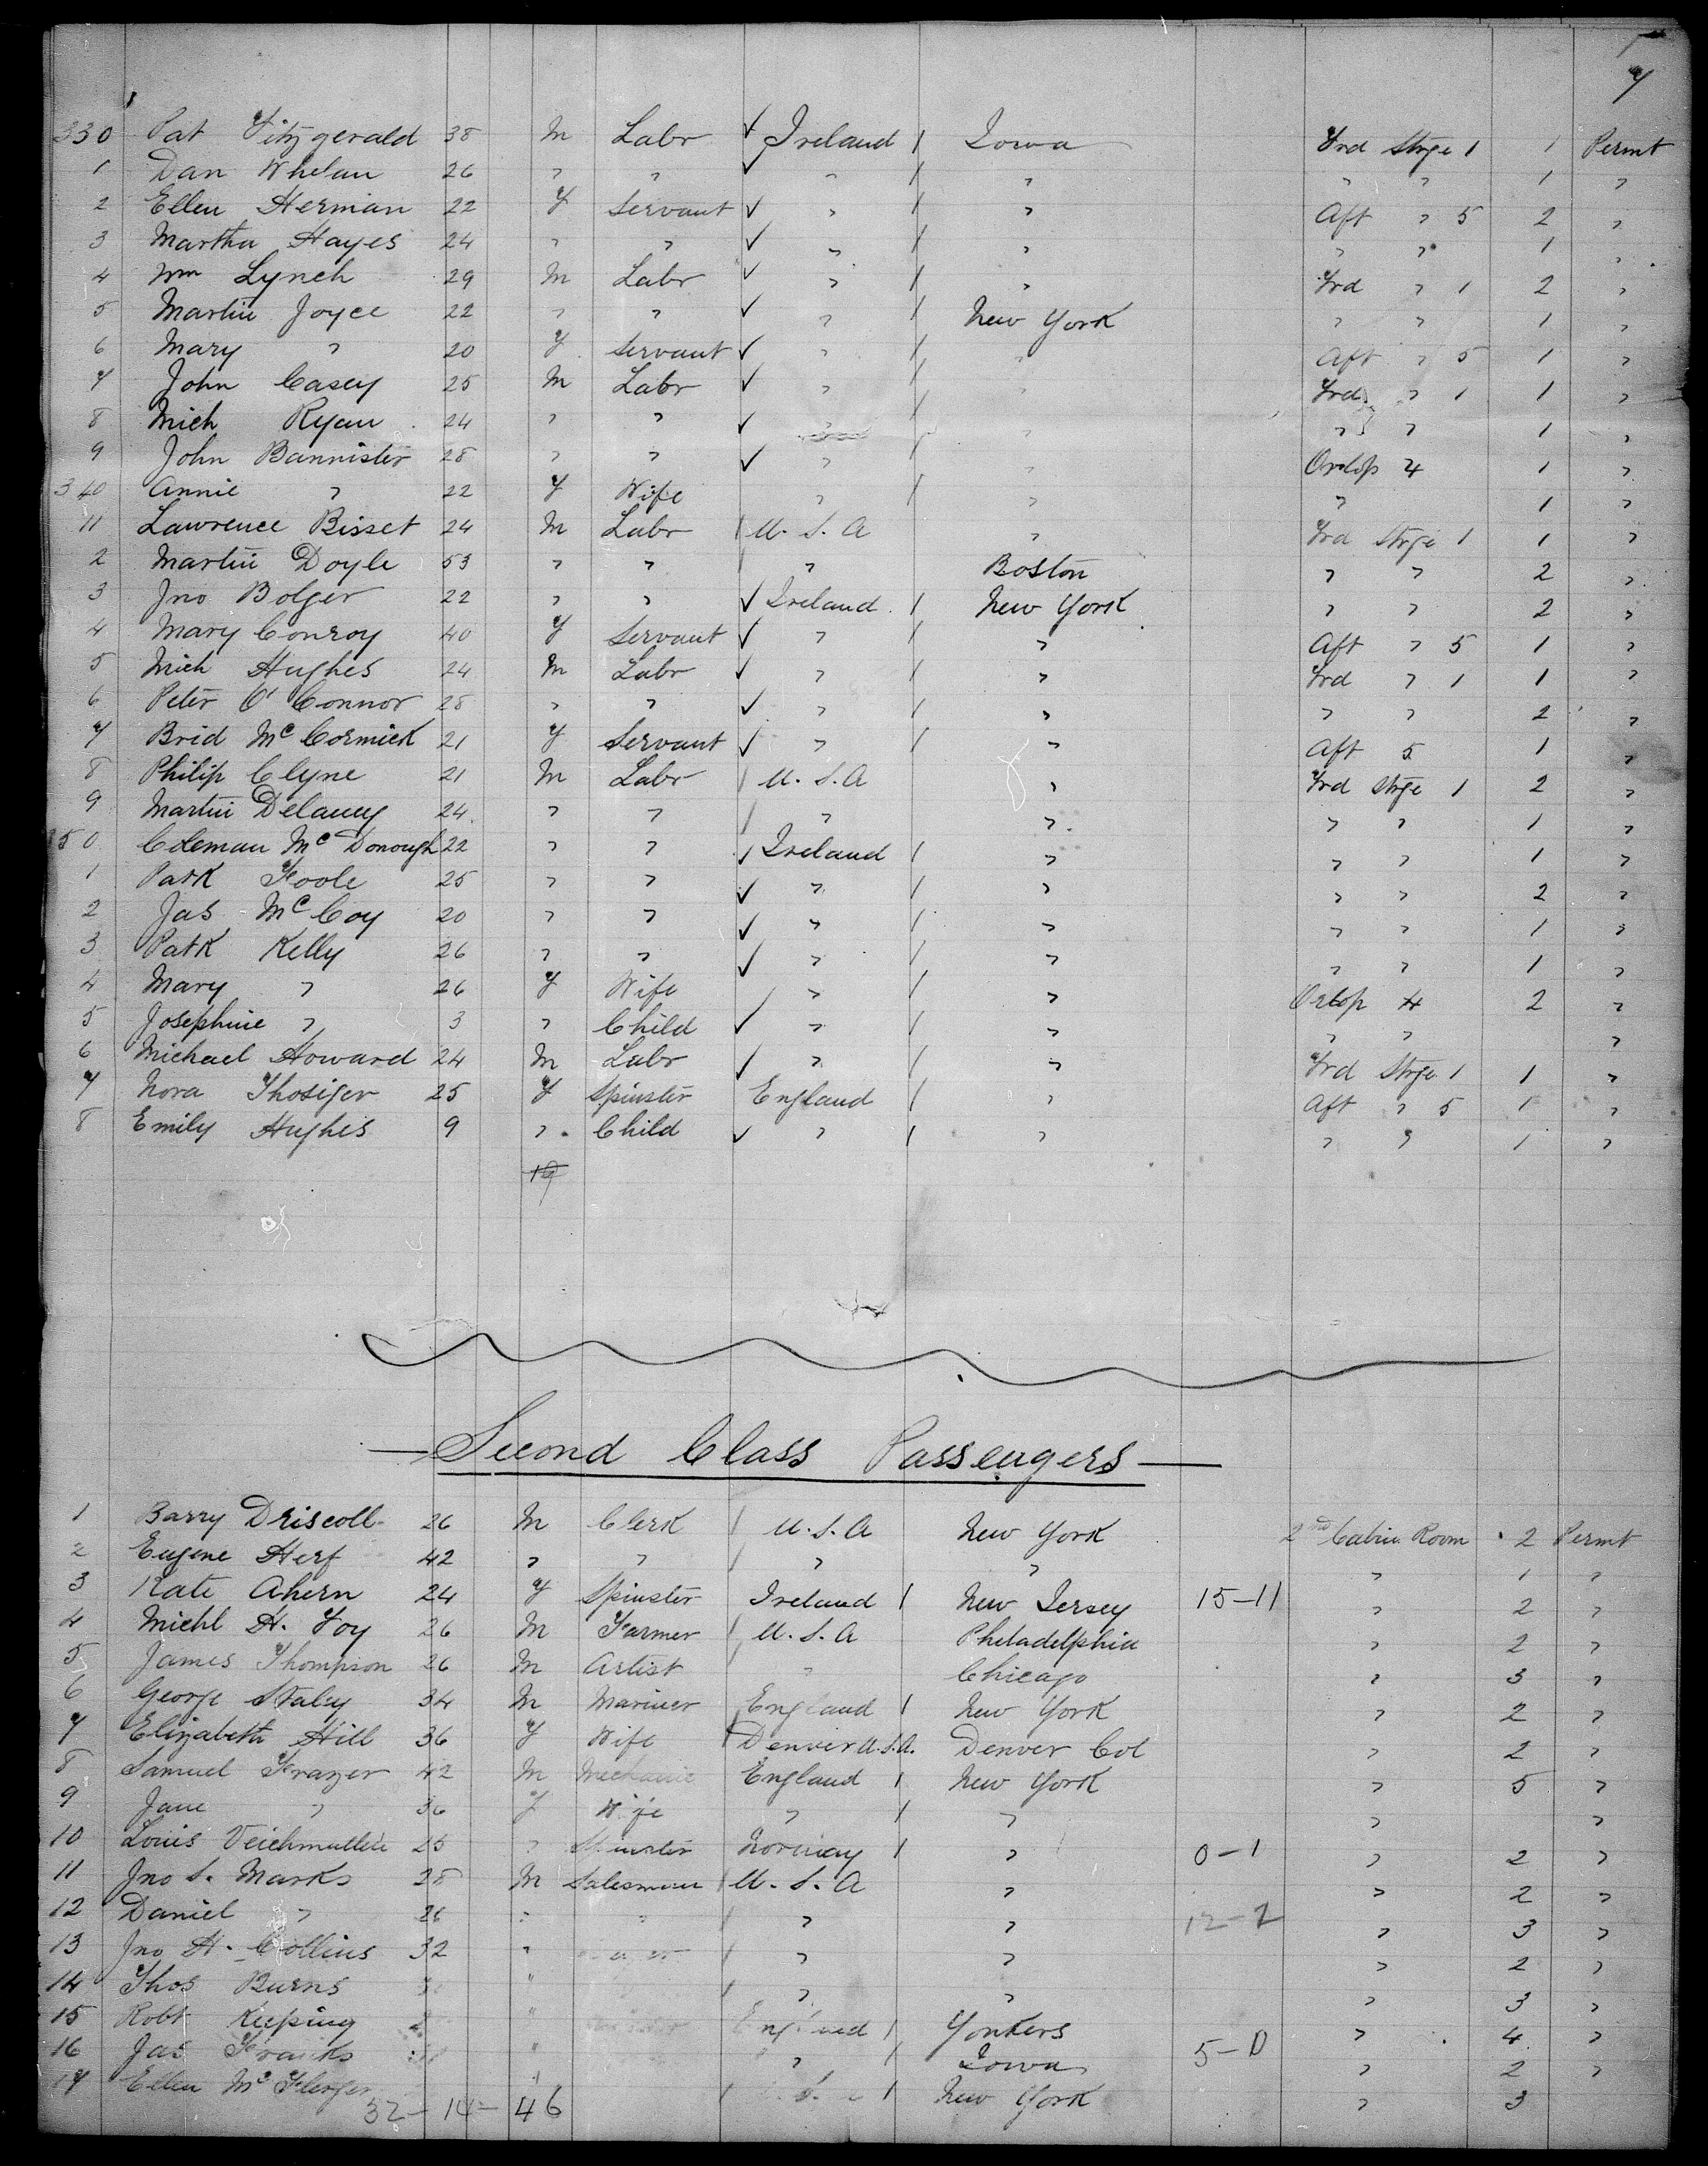 7
330 Pat Fitzgerald 38 M Labr ✓ Ireland / Iowa Frd Strge 1 1 Permt
1 Dan Whelan 26 " " ✓ " / " " " 1 "
2 Ellen Herman 22 F Servant ✓ " / " Aft " 5 2 "
3 Martha Hayes 24 " " ✓ " / " " " 1 "
4 Wm Lynch 29 M Labr ✓ " / " Frd " 1 2 "
5 Martin Joyce 22 " " ✓ " / New York " " 1 "
6 Mary " 20 F Servant ✓ " / " Aft " 5 1 "
7 John Casey 25 M Labr ✓ " / " Frd " 1 1 "
8 Mich Ryan 24 " " ✓ " / " " " 1 "
9 John Bannister 28 " " ✓ " / " Orlop 4 1 "
340 Annie " 22 F Wife " / " " 1 "
11 Lawrence Bisset 24 M Labr / U.S.A " Frd Strge 1 1 "
2 Martin Doyle 53 " " / " Boston " " 2 "
3 Jno Bolger 22 " " ✓ Ireland / New York " " 2 "
4 Mary Conroy 40 F Servant ✓ " / " Aft " 5 1 "
5 Mich Hughes 24 M Labr ✓ " / " Frd " 1 1 "
6 Peter O'Connor 28 " " ✓ " / " " " 2 "
7 Brid McCormick 21 F Servant ✓ " / " Aft 5 1 "
8 Philip Clyne 21 M Labr / U.S.A " Frd Strge 1 2 "
9 Martin Delaney 24 " " / " " " " 1 "
350 Coleman McDonough 22 " " ✓ Ireland / " " " 1 "
1 Patk Foole 25 " " ✓ " / " " " 2 "
2 Jas McCoy 20 " " ✓ " / " " " 1 "
3 Patk Kelly 26 " " ✓ " / " " " 1 "
4 Mary " 26 F Wife " / " Orlop 4 2 "
5 Josephine " 3 " Child ✓ " / " " " "
6 Michael Howard 24 M Labr ✓ " / " Frd Strge 1 1 "
7 Nora 25 F Spinster England / " Aft " 5 1 "
8 Emily Hughes 9 " Child ✓ " / " " " 1 "
19
Second Class Passengers
1 Barry Driscoll 26 M Clerk / U.S.A New York 2nd Cabin Room 2 Permt
2 Eugene Herf 42 " " / " " " 1 "
3 Kate Ahern 24 F Spinster Ireland / New Jersey 15-11 " 2 "
4 Michl H. Foy 26 M Farmer / U.S.A Philadelphia " 2 "
5 James Thompson 26 M Artist " Chicago " 3 "
6 George Staley 34 M Mariner England / New York " 2 "
7 Elizabeth Hill 36 F Wife Denver U.S.A. Denver Col " 2 "
8 Samuel Frazer 42 M Mechanic England / New York " 5 "
9 Jane " 36 F Wife " / " " "
10 Louis 25 " Spinster Norway / " 0-1 " 2 "
11 Jno S. Marks 28 M Salesman / U.S.A " " 2 "
12 Daniel " 26 " " / " " 12-2 " 3 "
13 Jno H. Collins 32 " / " " " 2 "
14 Thos Burns " / " " " 3 "
15 Robt Keeping " England / Yonkers " 4 "
16 Jas Franks " " / Iowa 5-0 " 2 "
17 Ellen " / New York " 3
32-14-46